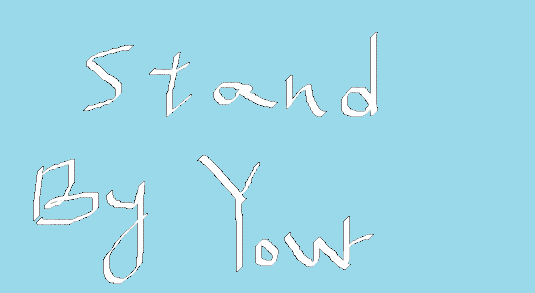 Stand
By Your